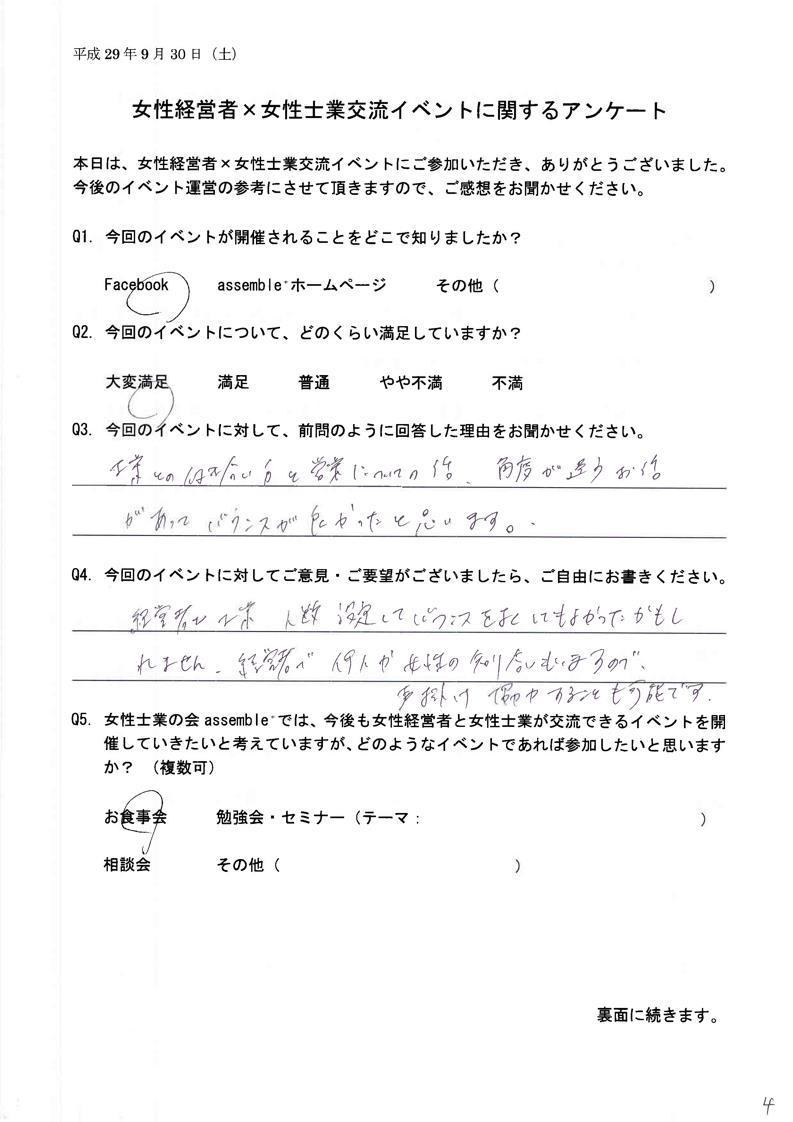 平成 29 年 9 月 30 日（土）
女性経営者×女性士業交流イベントに関するアンケート
本日は、女性経営者×女性士業交流イベントにご参加いただき、ありがとうございました。
今後のイベント運営の参考にさせて頂きますので、ご感想をお聞かせください。
Q1. 今回のイベントが開催されることをどこで知りましたか？
Facebook assemble⁺ホームページ その他（ ）
Q2. 今回のイベントについて、どのくらい満足していますか？
大変満足 満足 普通 やや不満 不満
Q3. 今回のイベントに対して、前問のように回答した理由をお聞かせください。
士業との付き合い方と営業についての話、角度が違うお話
があってバランスが良かったと思います。
Q4. 今回のイベントに対してご意見・ご要望がございましたら、ご自由にお書きください。
経営者と士業 人数 設定してバランスをよくしてもよかったかもし
れません。経営者で 何人か女性の知り合いもいますので、
お声掛け 協力することも可能です。
Q5. 女性士業の会 assemble⁺では、今後も女性経営者と女性士業が交流できるイベントを開
催していきたいと考えていますが、どのようなイベントであれば参加したいと思います
か？ （複数可）
お食事会 勉強会・セミナー（テーマ： ）
相談会 その他（ ）
裏面に続きます。
4